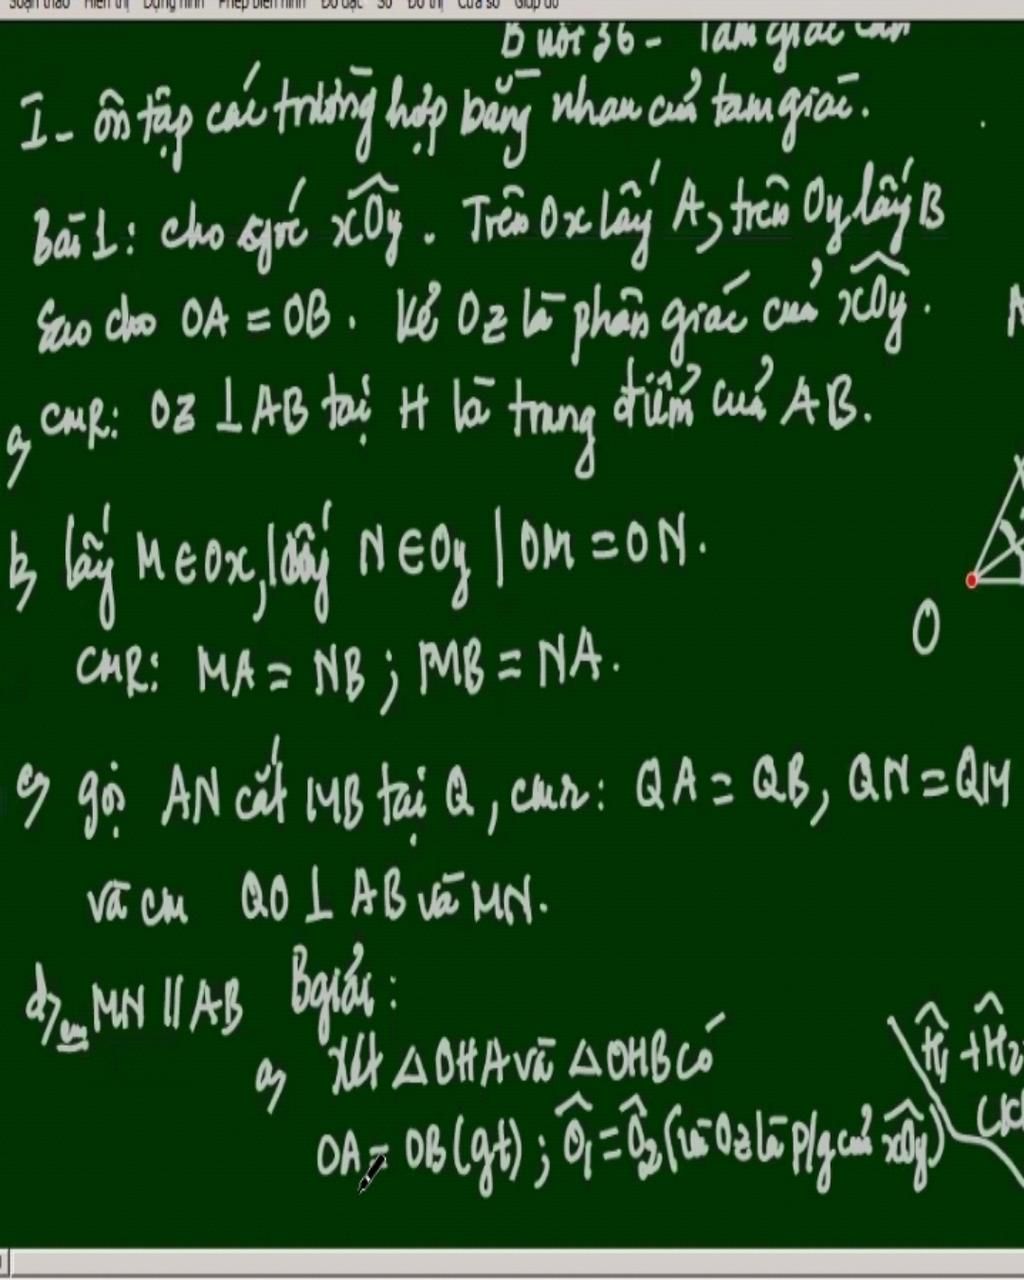 Soạn thảo Hiển thị Dựng hình Phép biến hình Đo đạc Số Đồ thị Cửa sổ Giúp đỡ
Buổi 36 - Tam giác cân
I - ôn tập các trường hợp bằng nhau của tam giác.
Bài 1: cho góc xOy. Trên Ox lấy A, trên Oy lấy B
sao cho OA = OB. Kẻ Oz là phân giác của xOy.
a, CMR: OZ ⊥ AB tại H là trung điểm của AB.
b, lấy M ∈ Ox, lấy N ∈ Oy | OM = ON.
CMR: MA = NB ; MB = NA.
c, gọi AN cắt MB tại Q, cmr: QA = QB, QN = QM
và cm QO ⊥ AB và MN.
d, cm MN // AB Bgiải:
a, Xét △OHA và △OHB có
OA = OB (gt) ; Ô1 = Ô2 (vì Oz là p/g của xOy)
O
Ĥ1 + Ĥ2